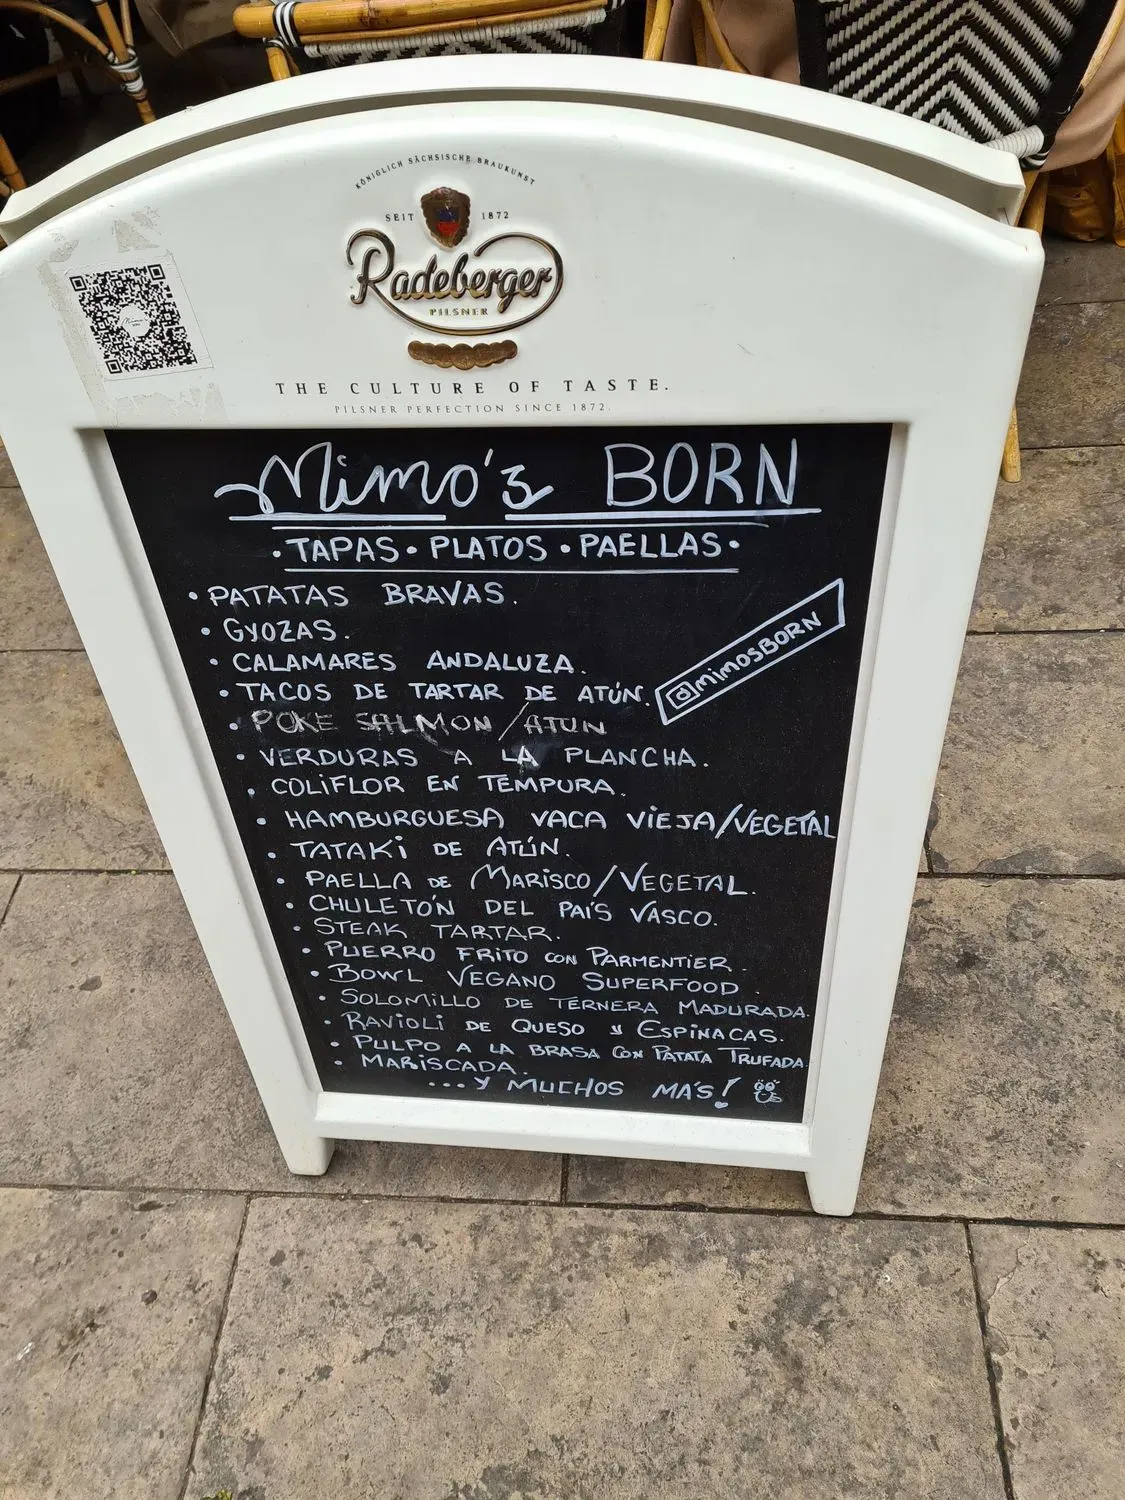 KÖNIGLICH SÄCHSISCHE BRAUKUNST
SEIT 1872
Radeberger
PILSNER
THE CULTURE OF TASTE.
PILSNER PERFECTION SINCE 1872.
Mimo's BORN
• TAPAS • PLATOS • PAELLAS •
• PATATAS BRAVAS.
• GYOZAS.
• CALAMARES ANDALUZA.
• TACOS DE TARTAR DE ATÚN.
@MIMOSBORN
• POKE SALMON/ATUN
• VERDURAS A LA PLANCHA.
• COLIFLOR EN TEMPURA.
• HAMBURGUESA VACA VIEJA/VEGETAL
• TATAKI DE ATÚN.
• PAELLA DE MARISCO/VEGETAL.
• CHULETÓN DEL PAÍS VASCO.
• STEAK TARTAR.
• PUERRO FRITO CON PARMENTIER.
• BOWL VEGANO SUPERFOOD.
• SOLOMILLO DE TERNERA MADURADA.
• RAVIOLI DE QUESO Y ESPINACAS.
• PULPO A LA BRASA CON PATATA TRUFADA.
• MARISCADA.
...Y MUCHOS MÁS!